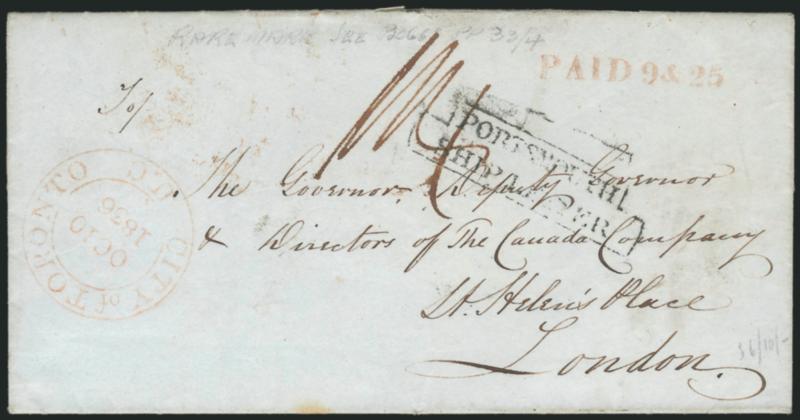 RARE MARK SEE BOGGS PP 33/4
PAID 9& 25
To/
PORTSMOUTH
SHIP LETTER
CITY of TORONTO U.C.
OC 10
1836
The Governor Deputy Governor
& Directors of The Canada Company
St. Helen's Place
London.